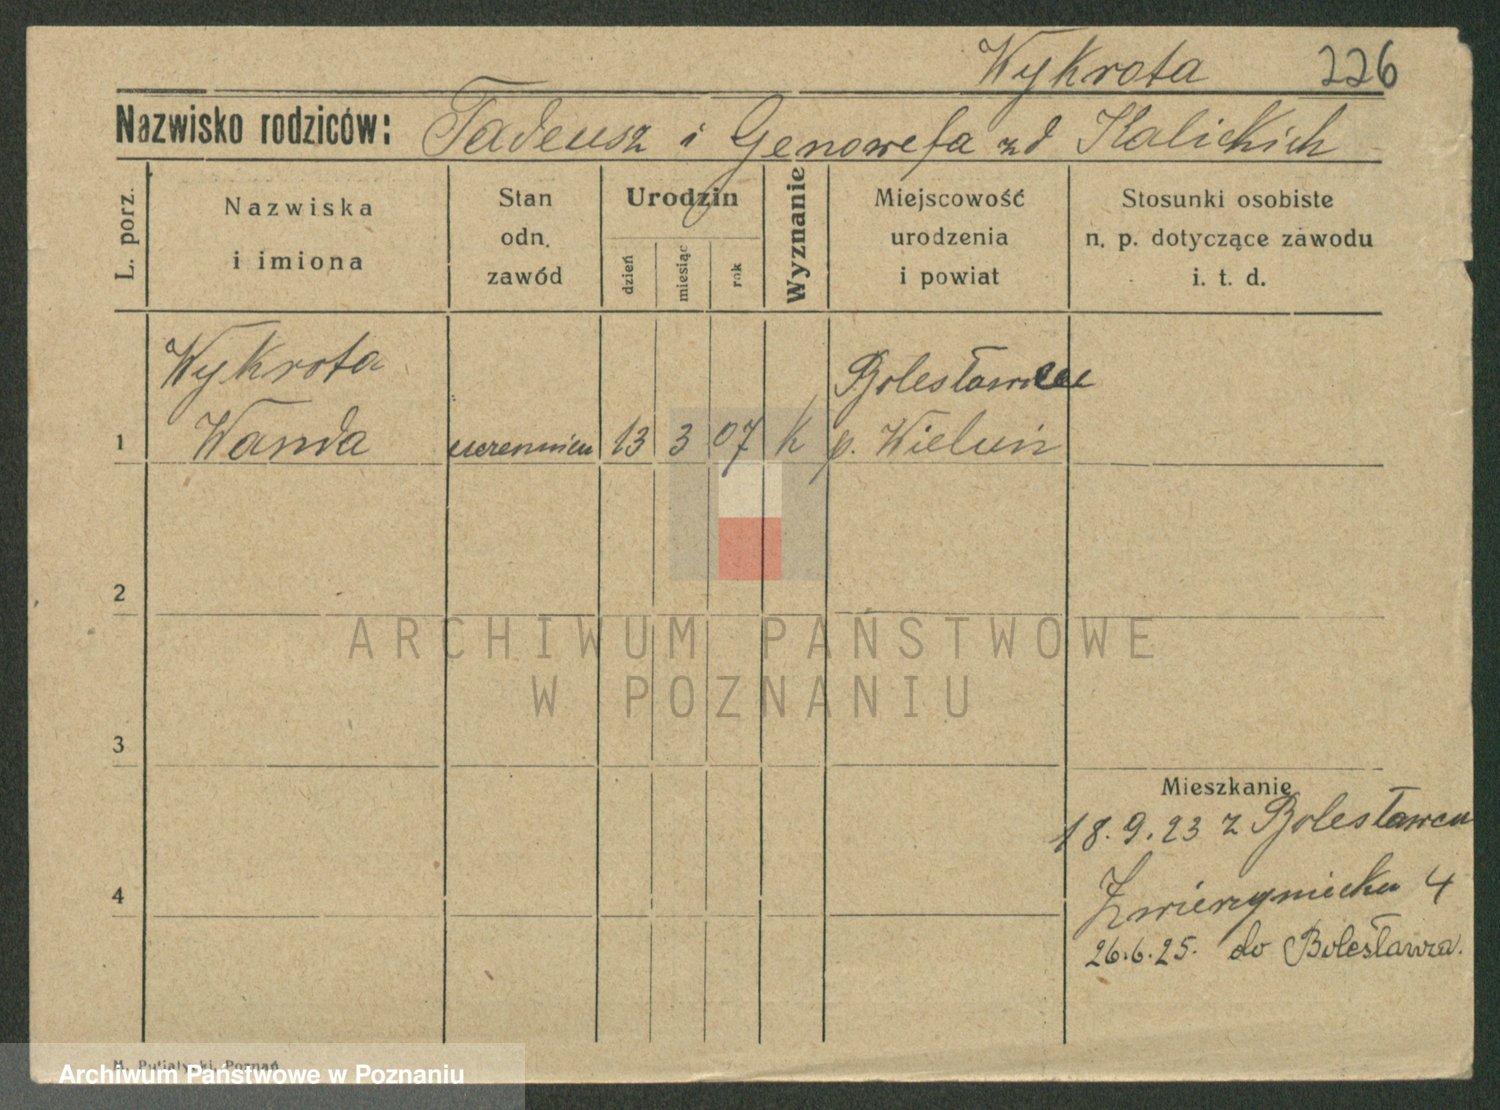 Wykrota 226
Nazwisko rodziców: Tadeusz i Genowefa zd Kalickich
L. porz.
Nazwiska
i imiona
Stan
odn.
zawód
Urodzin
dzień
miesiąc
rok
Wyznanie
Miejscowość
urodzenia
i powiat
Stosunki osobiste
n. p. dotyczące zawodu
i. t. d.
Wykrota
Bolesławiec
1 Wanda uczennica 13 3 07 K p. Wieluń
2
ARCHIWUM PAŃSTWOWE
W POZNANIU
3
Mieszkanie
18.9.23 z Bolesławca
4
Zwierzyniecka 4
26.6.25. do Bolesławca.
Poznań
Archiwum Państwowe w Poznaniu